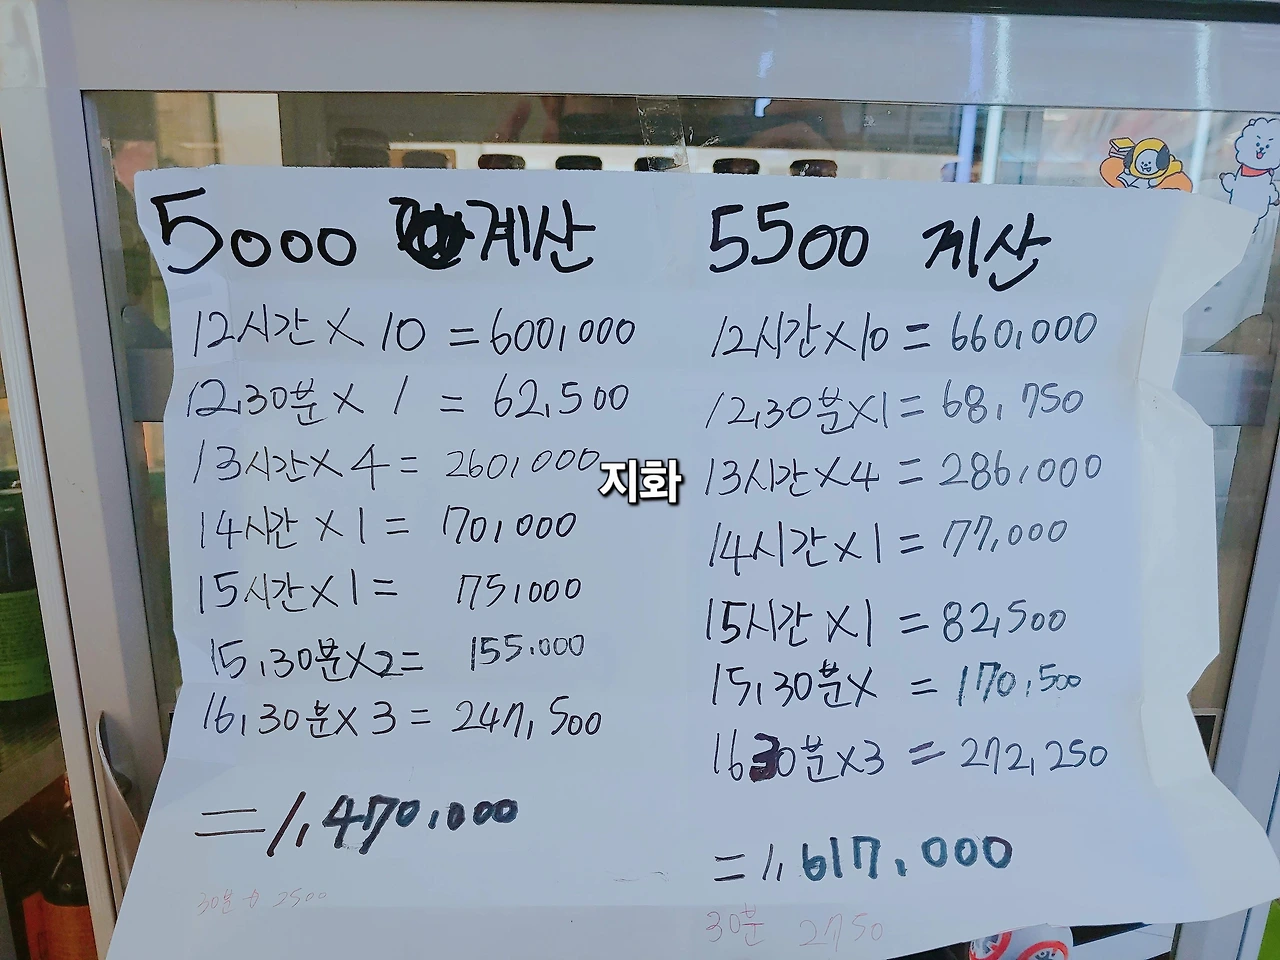 5000 계산
12시간 X 10 = 600,000
12,30분 X 1 = 62,500
13시간 X 4 = 260,000
14시간 X 1 = 70,000
15시간 X 1 = 75,000
15,30분 X 2 = 155.000
16,30분 X 3 = 247,500
= 1,470,000
30분 2500
지화
5500 계산
12시간 X 10 = 660,000
12,30분 X 1 = 68,750
13시간 X 4 = 286,000
14시간 X 1 = 77,000
15시간 X 1 = 82,500
15,30분 X = 170,500
16 30분 X 3 = 272,250
= 1,617,000
30분 2750